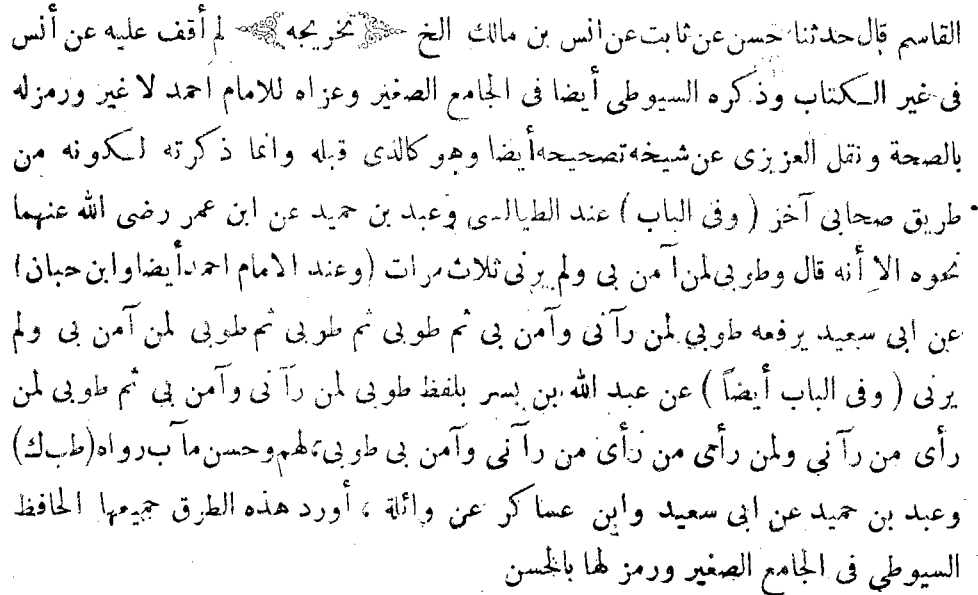 القاسم قال حدثنا حسن عن ثابت عن انس بن مالك الخ ﴿ تخريجه ﴾ لم أقف عليه عن أنس
فى غير الكتاب وذكره السيوطى أيضا فى الجامع الصغير وعزاه للامام احمد لا غير ورمز له
بالصحة ونقل العزيزى عن شيخه تصحيحه أيضا وهو كالذى قبله وانما ذكرته لكونه من
طريق صحابى آخر ( وفى الباب ) عند الطيالسى وعبد بن حميد عن ابن عمر رضى الله عنهما
نحوه الا أنه قال وطوبى لمن آمن بى ولم يرنى ثلاث مرات (وعند الامام احمد أيضا وابن حبان)
عن ابى سعيد يرفعه طوبي لمن رآنى وآمن بى ثم طوبى ثم طوبى ثم طوبى لمن آمن بى ولم
يرنى ( وفى الباب أيضاً ) عن عبد الله بن بسر بلفظ طوبى لمن رآنى وآمن بي ثم طوبى لمن
رأى من رآني ولمن رأى من رأى من رآنى وآمن بى طوبى لهم وحسن مآب رواه (طب ك)
وعبد بن حميد عن ابى سعيد وابن عساكر عن واثلة ، أورد هذه الطرق جميعها الحافظ
السيوطي فى الجامع الصغير ورمز لها بالحسن